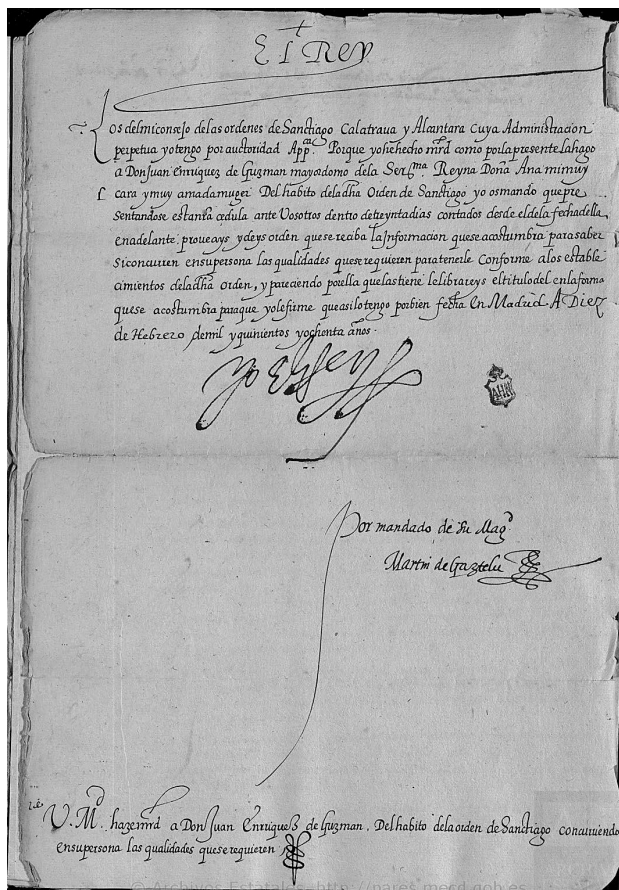 El Rey
Los del mi consejo de las ordenes de Sanctiago Calatraua y Alcantara cuya Administracion
perpetua yo tengo por auctoridad App.ca Porque yo he hecho mrd como por la presente la hago
a Don Juan enrriquez de Guzman mayordomo dela Ser.ma Reyna Doña Ana mi muy
cara y muy amada muger Del habito dela dha Orden de Sanctiago yo os mando que pre
sentandose esta mi cedula ante Vosotros dentro de treynta dias contados desde el dela fecha della
en adelante proueays y deys orden que se reciba la Informacion que se acostumbra para saber
si concurren en su persona las qualidades que se requieren para tenerle conforme a los estable
cimientos dela dha orden, y pareciendo por ella que las tiene le librareys el titulo del en la forma
que se acostumbra para que yo le firme que asi lo tengo por bien fecha En Madrid. A Diez
de Hebrero de mil y quinientos y ochenta años.
Yo el Rey
AHN
Por mandado de su Mag.d
Martin de Gaztelu
V. M.d haze mrd a Don Juan Enrriquez de Guzman. Del habito dela orden de Sanctiago concurriendo
en su persona las qualidades que se requieren
© Archivos Estatales http://pares.mecd.gob.es